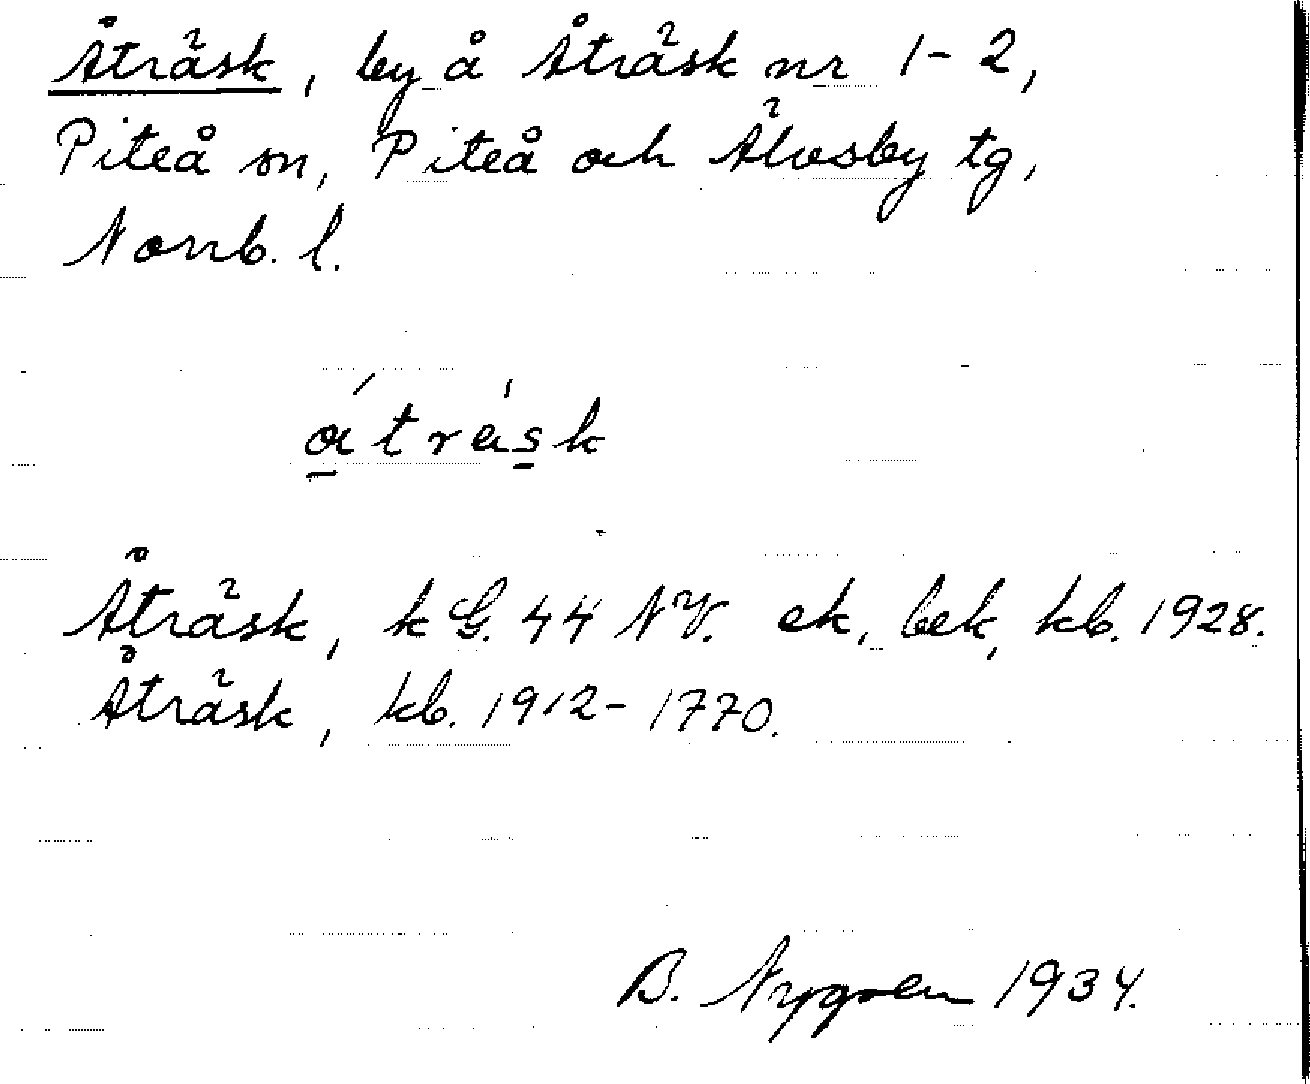 Åträsk, by å Åträsk nr 1-2,
Piteå sn, Piteå och Älvsby tg,
Norrb. l.
áträsk
Åträsk, k G. 44 NV. ek, bek, kb. 1928.
Åträsk, kb. 1912-1770.
B. Nygren 1934.